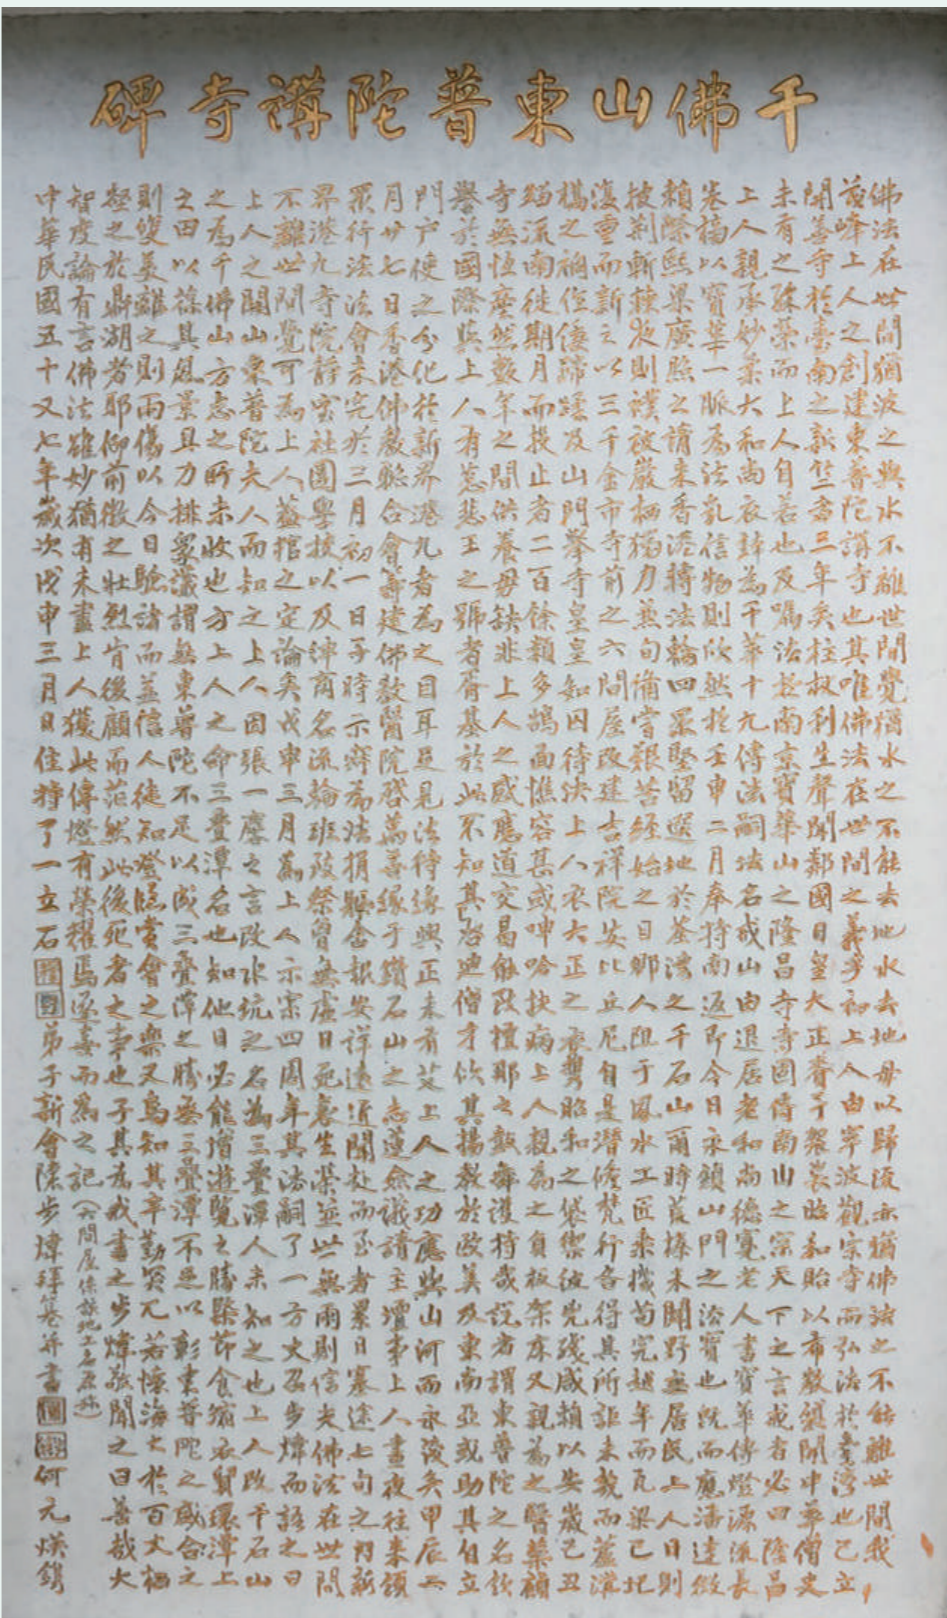 千佛山東普陀講寺碑
佛法在世間猶波之與水不離世間覺猶水之不能去地水去地毋以歸流亦猶佛法之不能離世間我
茂峰上人之創建東普陀講寺也其唯佛法在世間之義乎初上人由寧波觀宗寺而弘法於臺灣也已立
開善寺於臺南之新竺者三年矣柱杖利生聲聞鄰國日皇大正賚予袈裟昭和貽以布教獎開中華僧史
未有之殊榮而上人自若也及嗎法於南京寶華山之隆昌寺寺固倚南山之宗天下之言戒者必曰隆昌
上人親承妙柔大和尚衣鉢為千華十九傳法嗣法名戒山由退居老和尚德寬老人書寶華傳燈源流長
卷摘以寶華一脈為法乳信物則欣然於壬申二月奉持南返即今日永鎮山門之法寶也既而應潘達微
賴際熙梁廣照之請來香港轉法輪四眾堅留選地於荃灣之千石山爾時蓁榛未闢野無居民上人日則
披荆斬棘夜則襆被巖栖獨力無句備嘗艱苦經始之日鄉人阻于風水工匠乘機苟完越年而瓦梁已圮
復重而新之以三千金市寺前之六間屋改建吉祥院安比丘尼自是潛脩梵行各得其所詎未幾而蓋漢
橋之禍侄傯蹄躪及山門舉寺皇皇知囚待決上人衣大正之衣襲昭和之袋禦彼兇殘咸賴以安歲己丑
踏流南徙期月而投止者二百餘類多鵠面憔容甚或呻吟扶病上人親為之負板架床又親為之醫藥顧
寺無恒產然數年之間供養毋缺非上人之感應道交曷能致檀耶之鼓舞護持哉說者謂東普陀之名飲
譽於國際與上人有慈悲王之號者胥基於此不知其啓迪僧才飲其揚教於歐美及東南亞或助其自立
門戶使之分化於新界港九者為之目耳且見法待緣與正未有艾上人之功應與山河而永凌矣甲辰二
月廿七日香港佛教聯合會籌建佛教醫院啓萬善緣于鑽石山之志蓮僉議請主壇事上人晝夜往來領
眾行法法會未完於三月初一日子時示寂為法捐軀舍報安詳遠近聞赴而至者累日塞途七旬之內新
界港九寺院靜室社團學校以及紳商名流輪班致祭曾無虛日死哀生榮並世無兩則信夫佛法在世間
不離世間覺可為上人蓋棺之定論矣戊申三月為上人示寂四周年其法嗣了一方丈召步煒而語之曰
上人之開山東普陀夫人而知之上人因張一麐之言改水坑之名為三疊潭人未知之也上人改千石山
之為千佛山方志之所未收也方上人之命三疊潭名也知他日必能增遊覽之勝槩節食縮衣買環潭上
之田以葆其風景具力排眾議謂無東普陀不足以成三疊潭之勝無三疊潭不足以彰東普陀之盛合之
則雙美離之則兩傷以今日驗諸而益信人徒知登臨賞會之樂又烏知其辛勤實元若懷海大於百丈栖
壑之於鼎湖者耶仰前徽之壯烈肯後顧而茫然此後死者之事也子其為我書之步煒敬聞之曰善哉大
智度論有言佛法雖妙猶有未盡上人獲此傳燈有榮耀焉遂喜而為之記(六間屋係該地工名原稱)
中華民國五十又七年歲次戊申三月日住持了一立石 弟子新會陳步煒拜撰并書 何元煐鐫